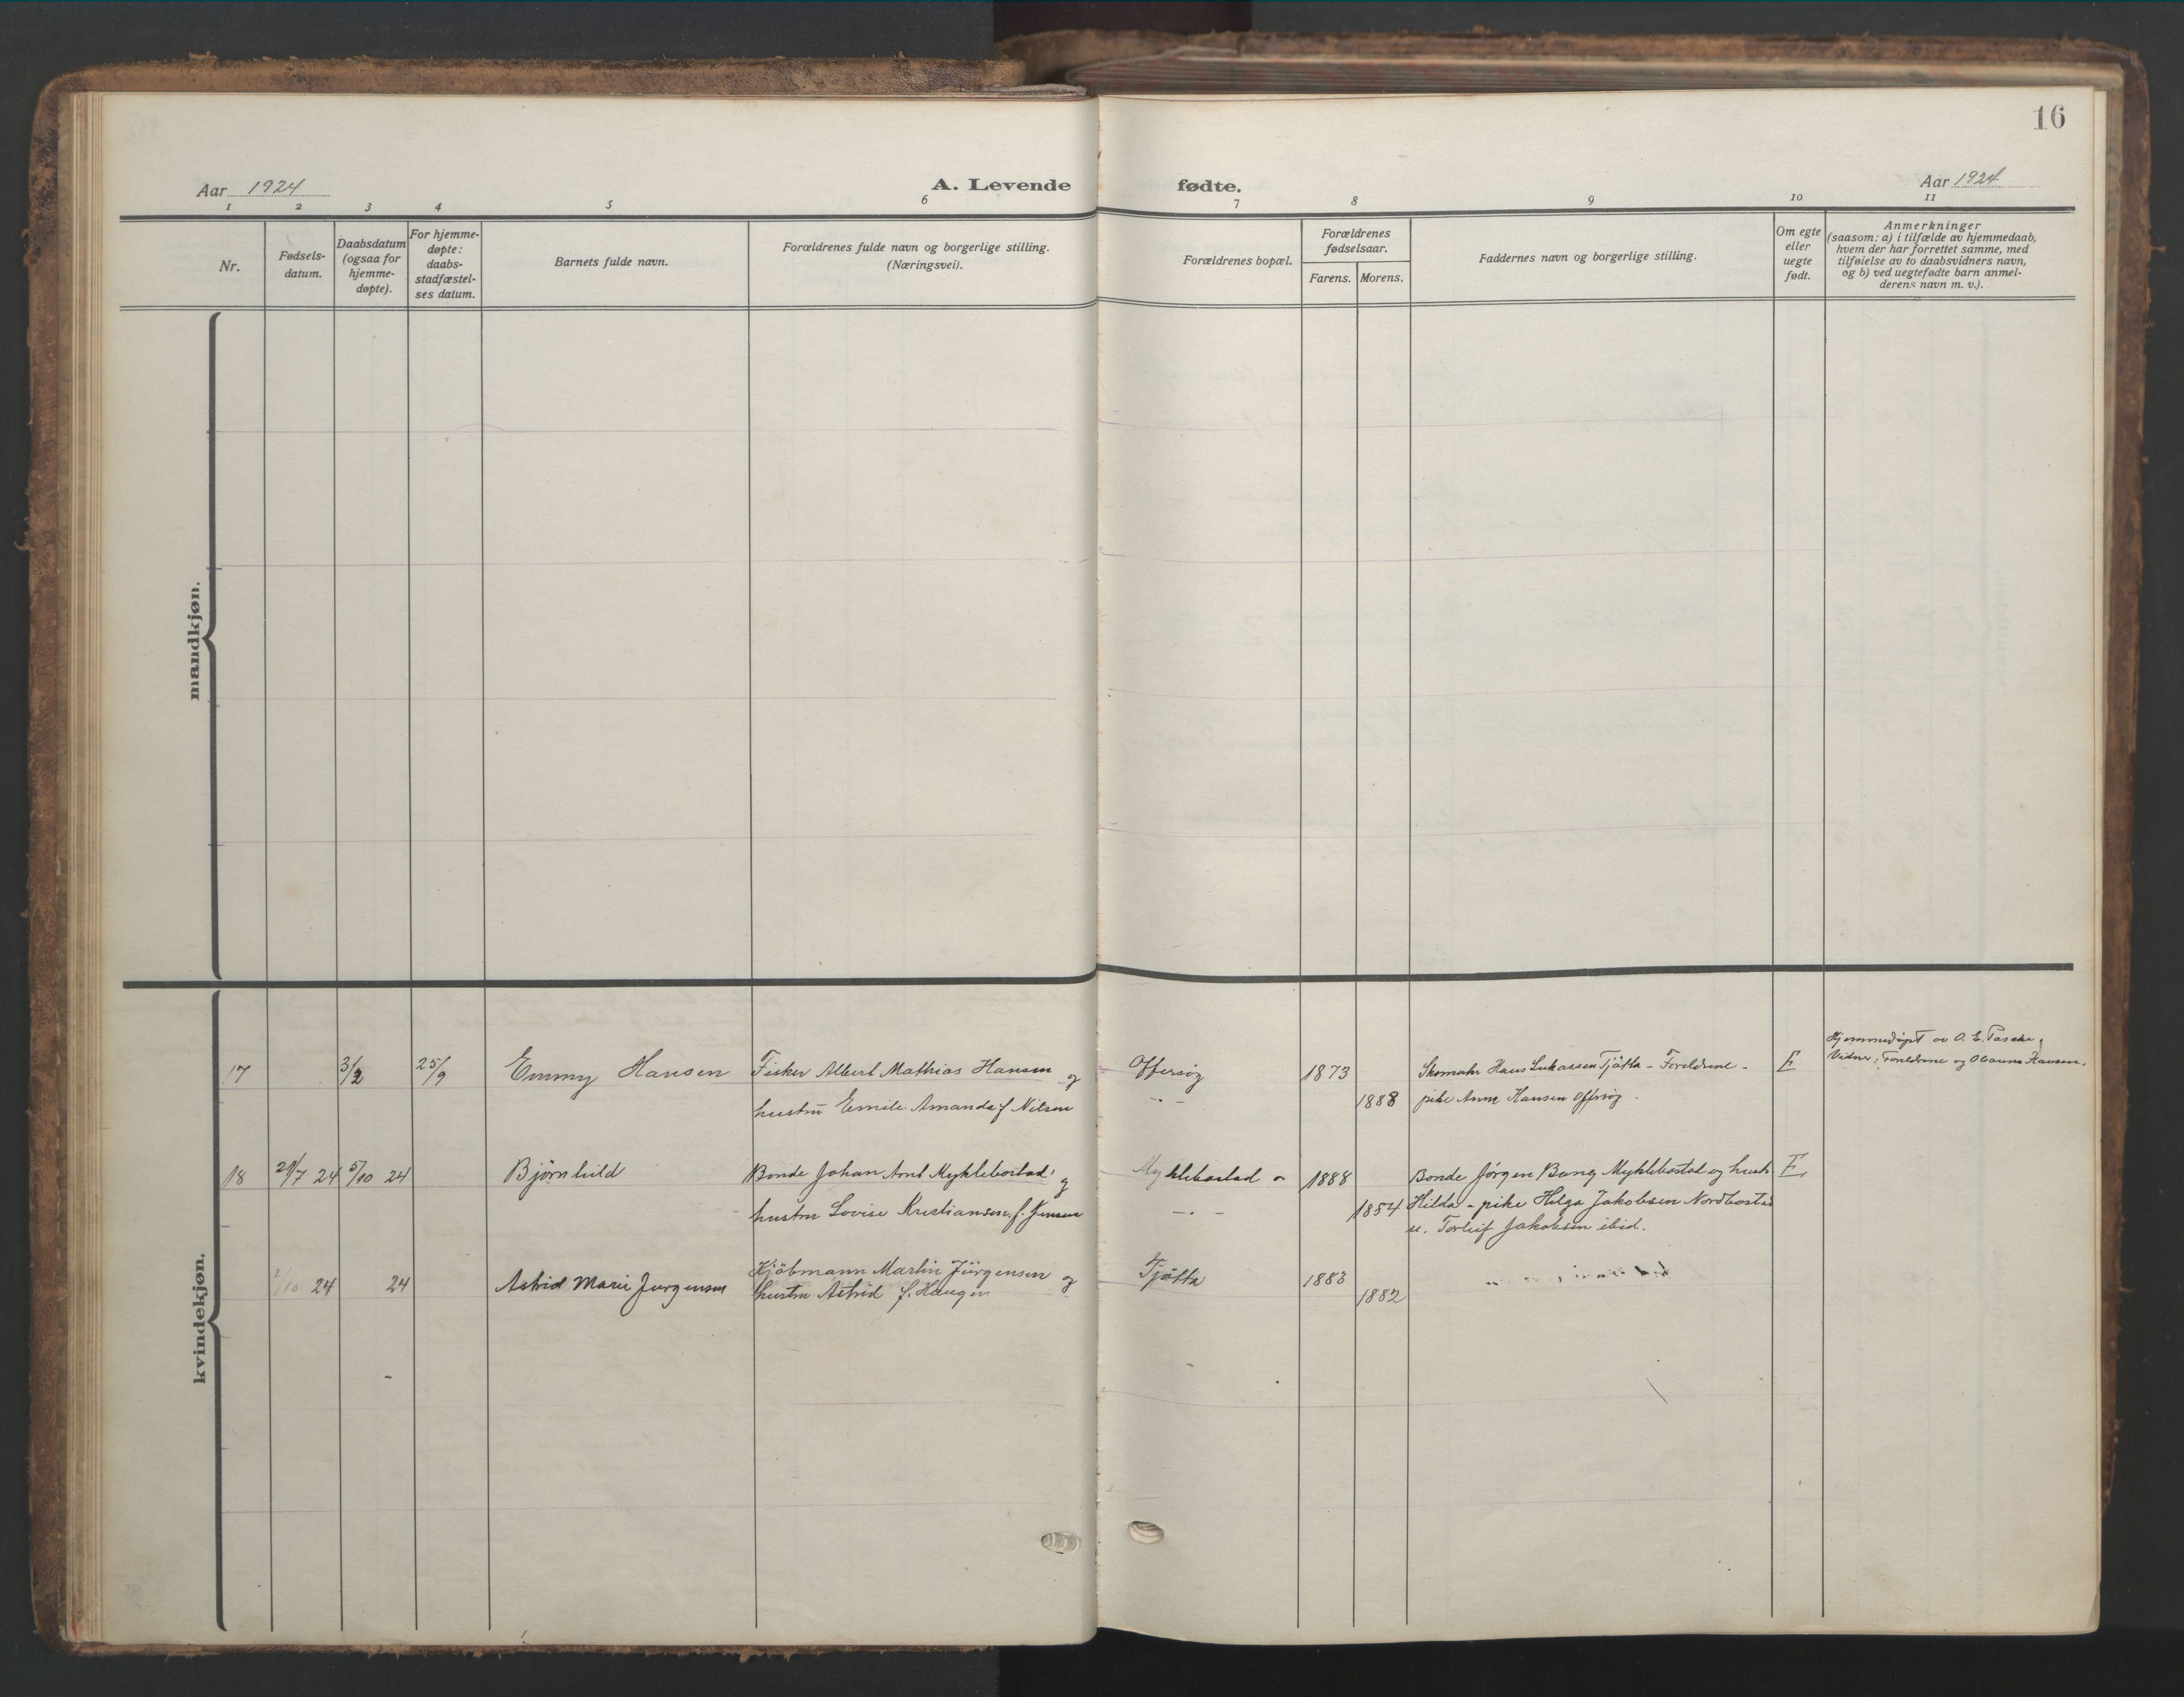 16
Aar 1924
A. Levende fødte.
Aar 1924
1 2 3 4 5 6 7 8 9 10 11
Nr.
Fødsels-
datum.
Daabsdatum
(ogsaa for
hjemme-
døpte).
For hjemme-
døpte:
daabs-
stadfæstel-
ses datum.
Barnets fulde navn.
Forældrenes fulde navn og borgerlige stilling.
(Næringsvei).
Forældrenes bopæl.
Forældrenes
fødselsaar.
Farens. Morens.
Faddernes navn og borgerlige stilling.
Om egte
eller
uegte
født.
Anmerkninger
(saasom: a) i tilfælde av hjemmedaab,
hvem der har forrettet samme, med
tilføielse av to daabsvidners navn,
og b) ved uegtefødte barn anmel-
derens navn m. v.).
mandkjøn.
kvindekjøn.
17 3/2 25/9 Emmy Hansen
Fisker Albert Mathias Hansen og
hustru Emilie Amanda f Nilsen
Offersøy
1873
1888
Skomaker Hans Lukassen Tjøtta - Foreldrene -
pike Anna Hansen Offersøy.
E
Hjemmedøpt av O. E.
Vidner: Foreldrene og Hansen.
18 /7 24 5/10 24 Bjørnhild
Bonde Johan Arnt Myklebostad og
hustru Lovise Kristiansen f. Jensen
Myklebostad
1888
1854
Bonde Jørgen Bang Myklebostad og hustr.
Hilda - pike Helga Jakobsen Nordbostad
u. Torleif Jakobsen ibid.
E
/10 24 24 Astrid Marie Jurgensen
Kjøbmann Martin Jürgensen og
hustru Astrid f. Haugen
Tjøtta
1883
1882